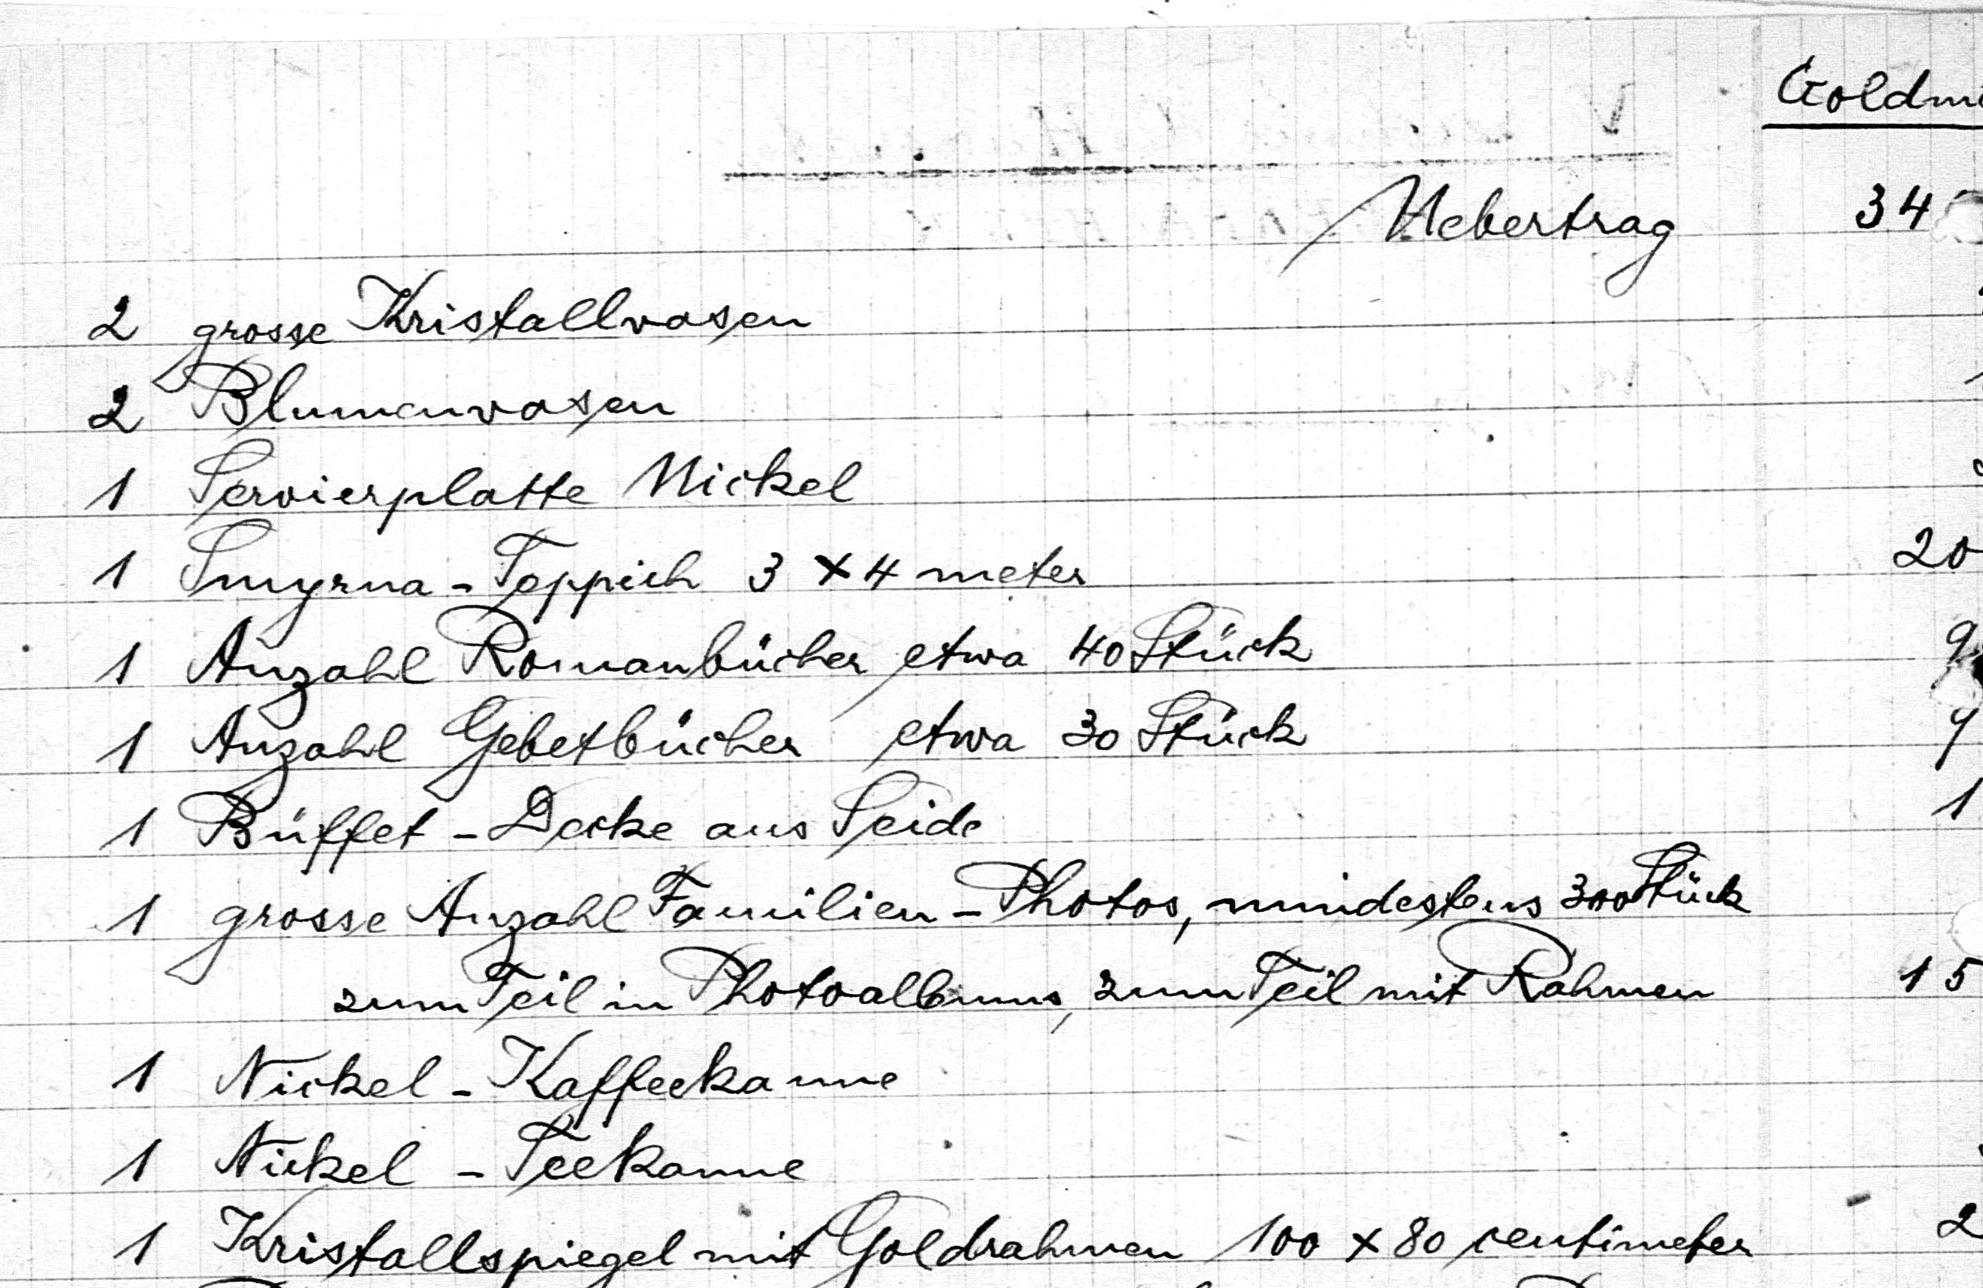 Goldm
Uebertrag 34
2 grosse Kristallvasen
2 Blumenvasen
1 Servierplatte Nickel
1 Smyrna - Teppich 3 x 4 meter 20
1 Anzahl Romanbücher etwa 40 Stück 9
1 Anzahl Gebetbücher etwa 30 Stück 9
1 Büffet - Decke aus Seide 1
1 grosse Anzahl Familien - Photos, mindestens 300 Stück
zum Teil in Photoalbums, zum Teil mit Rahmen 15
1 Nickel - Kaffeekanne
1 Nickel - Teekanne
1 Kristallspiegel mit Goldrahmen 100 x 80 centimeter 2